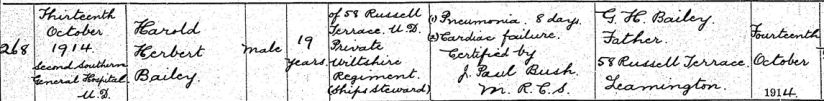 268
Thirteenth
October
1914.
Second Southern
General Hospital.
U.D.
Harold
Herbert
Bailey.
Male
19
years.
of 58 Russell
Terrace. U.D.
Private
Wiltshire
Regiment.
(Ships Steward)
(1) Pneumonia. 8 days.
(2) Cardiac failure.
Certified by
J. Paul Bush
M.R.C.S.
G. H. Bailey.
Father.
58 Russell Terrace.
Leamington.
Fourteenth
October
1914.